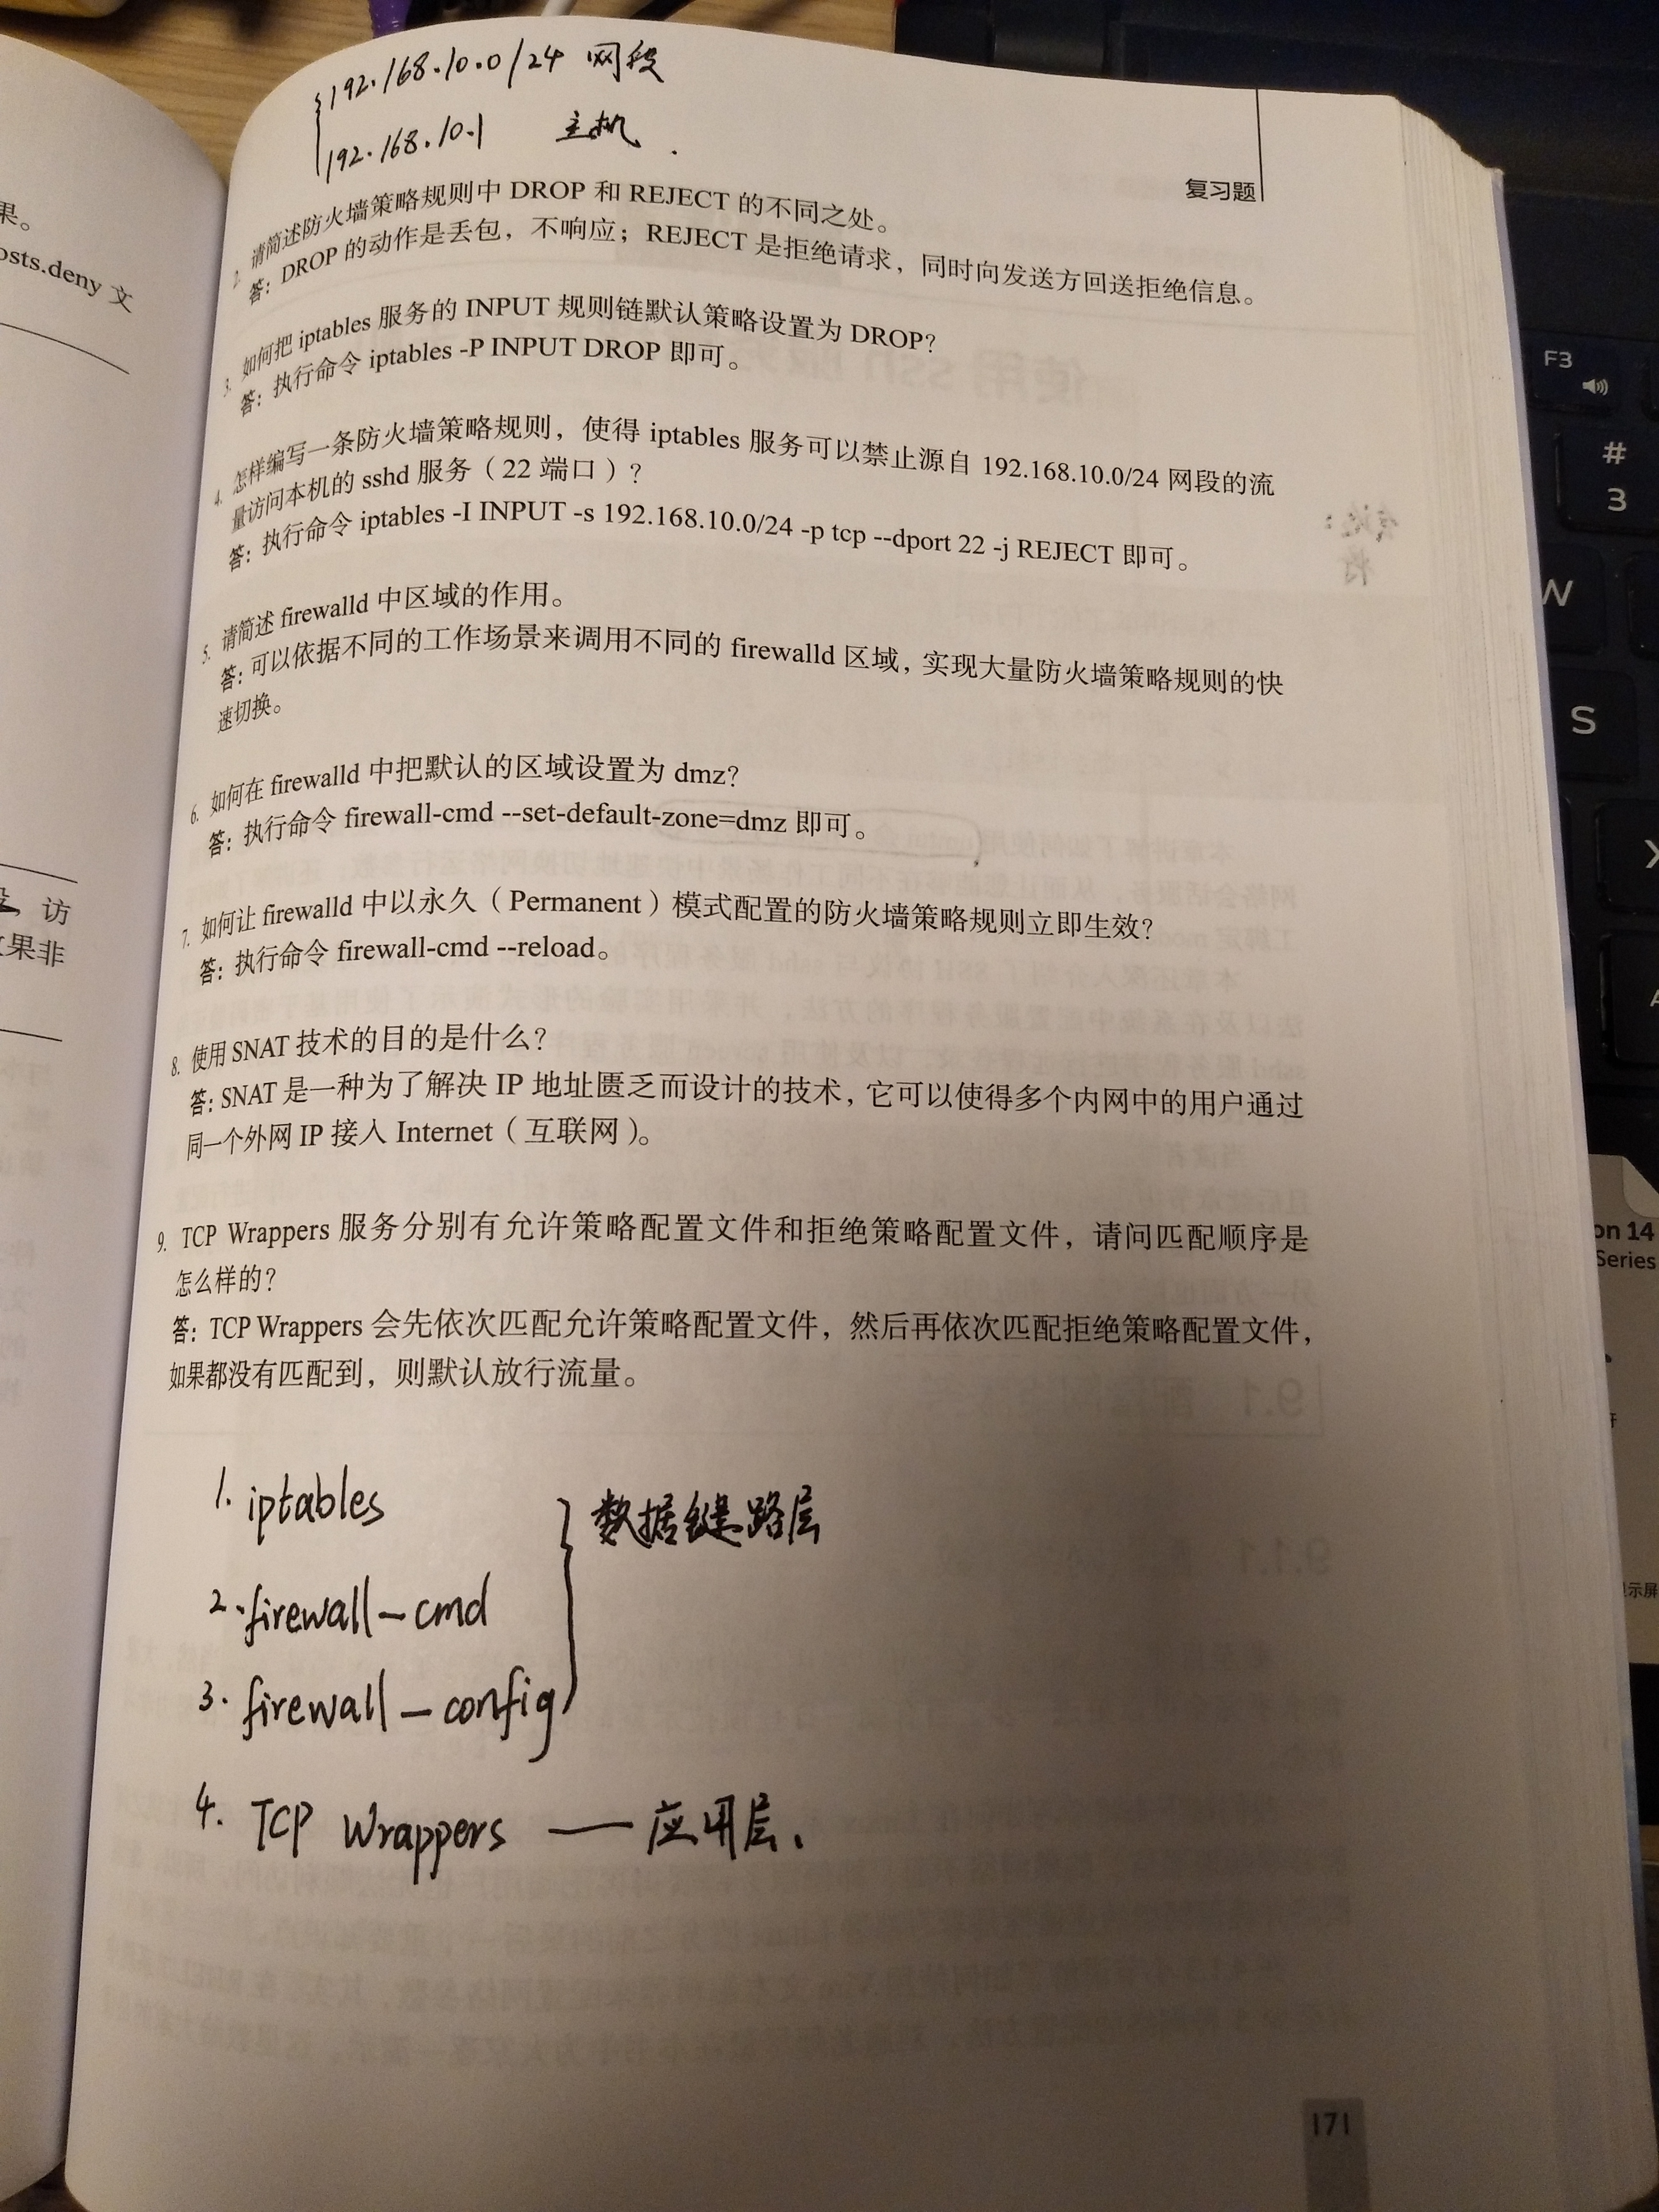 192.168.10.0/24 网段
192.168.10.1 主机.
复习题
2. 请简述防火墙策略规则中 DROP 和 REJECT 的不同之处。
答：DROP 的动作是丢包，不响应；REJECT 是拒绝请求，同时向发送方回送拒绝信息。
3. 如何把 iptables 服务的 INPUT 规则链默认策略设置为 DROP？
答：执行命令 iptables -P INPUT DROP 即可。
4. 怎样编写一条防火墙策略规则，使得 iptables 服务可以禁止源自 192.168.10.0/24 网段的流
量访问本机的 sshd 服务（22 端口）？
答：执行命令 iptables -I INPUT -s 192.168.10.0/24 -p tcp --dport 22 -j REJECT 即可。
5. 请简述 firewalld 中区域的作用。
答：可以依据不同的工作场景来调用不同的 firewalld 区域，实现大量防火墙策略规则的快
速切换。
6. 如何在 firewalld 中把默认的区域设置为 dmz？
答：执行命令 firewall-cmd --set-default-zone=dmz 即可。
7. 如何让 firewalld 中以永久（Permanent）模式配置的防火墙策略规则立即生效？
答：执行命令 firewall-cmd --reload。
8. 使用 SNAT 技术的目的是什么？
答：SNAT 是一种为了解决 IP 地址匮乏而设计的技术，它可以使得多个内网中的用户通过
同一个外网 IP 接入 Internet（互联网）。
9. TCP Wrappers 服务分别有允许策略配置文件和拒绝策略配置文件，请问匹配顺序是
怎么样的？
答：TCP Wrappers 会先依次匹配允许策略配置文件，然后再依次匹配拒绝策略配置文件，
如果都没有匹配到，则默认放行流量。
1. iptables
数据键路层
2. firewall-cmd
3. firewall-config
4. TCP Wrappers — 应用层、
171
果。
osts.deny 文
访
果非
F3
#
3
W
S
X
on 14
Series
示屏